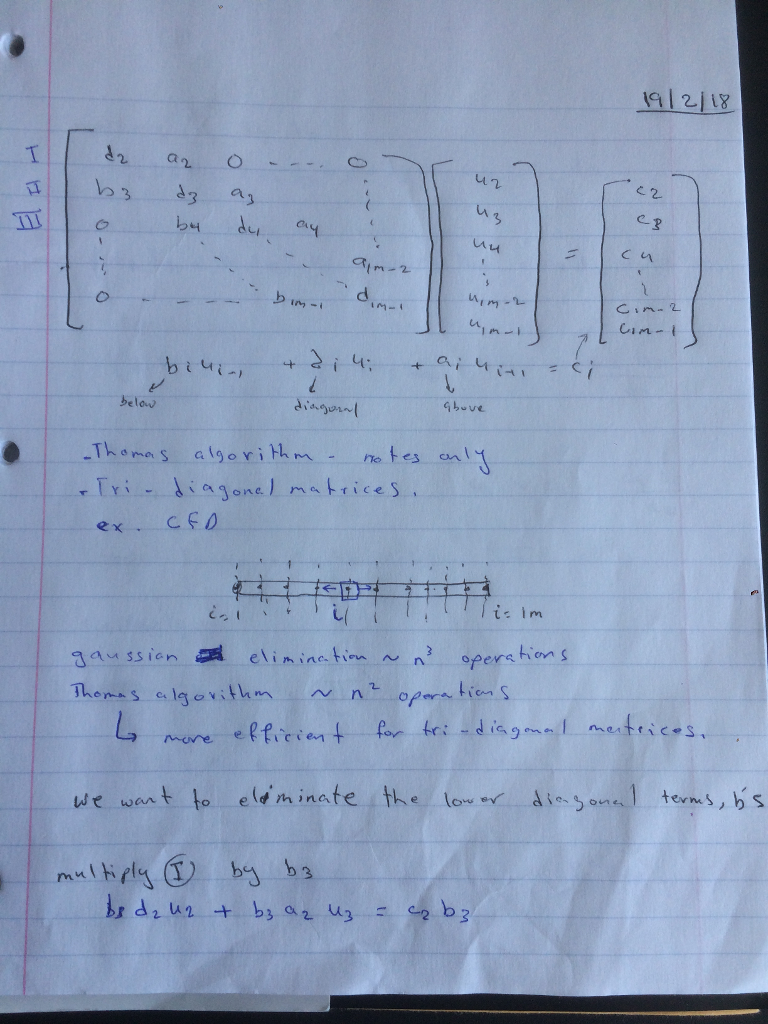 19/2/18
I d2 a2 0 - - - - 0 u2 c2
II b3 d3 a3 u3 c3
III 0 b4 d4 a4 u4 = c4
aim-2
0 - - - - bim-1 dim-1 uim-2 cim-2
uim-1 cim-1
bi ui-1 + di ui + ai ui+1 = ci
below diagonal above
- Thomas algorithm - notes only
- Tri-diagonal matrices.
ex. CFD
i=1 i i= im
gaussian elimination ~ n³ operations
Thomas algorithm ~ n² operations
↳ more efficient for tri-diagonal matrices.
we want to eliminate the lower diagonal terms, b's
multiply (I) by b3
b3 d2 u2 + b3 a2 u3 = c2 b3